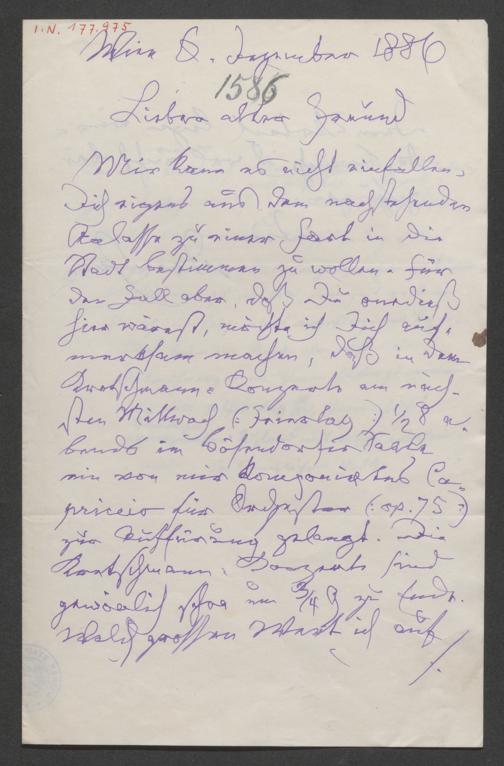 I.N. 177.975
Wien 6. Dezember 1886
1586
Lieber alter Freund
Mir kann es nicht einfallen,
Dich eigens aus dem nachstehenden
Anlasse zu einer Fart in die
Stadt bestimmen zu wollen. Für
den Fall aber, daß Du onedieß
hier wärest, möchte ich Dich auf-
merksam machen, daß in dem
Kretschmann-Konzerte am näch-
sten Mittwoch (: Feiertag :) 1/2 8 a-
bends im Bösendorfer Saale
ein von mir komponirtes Ca-
priccio für Orchester (: op. 75 :)
zur Auffürung gelangt. Die
Kretschmann-Konzerte sind
gewönlich schon um 3/4 9 zu Ende.
Welch grossen Wert ich auf